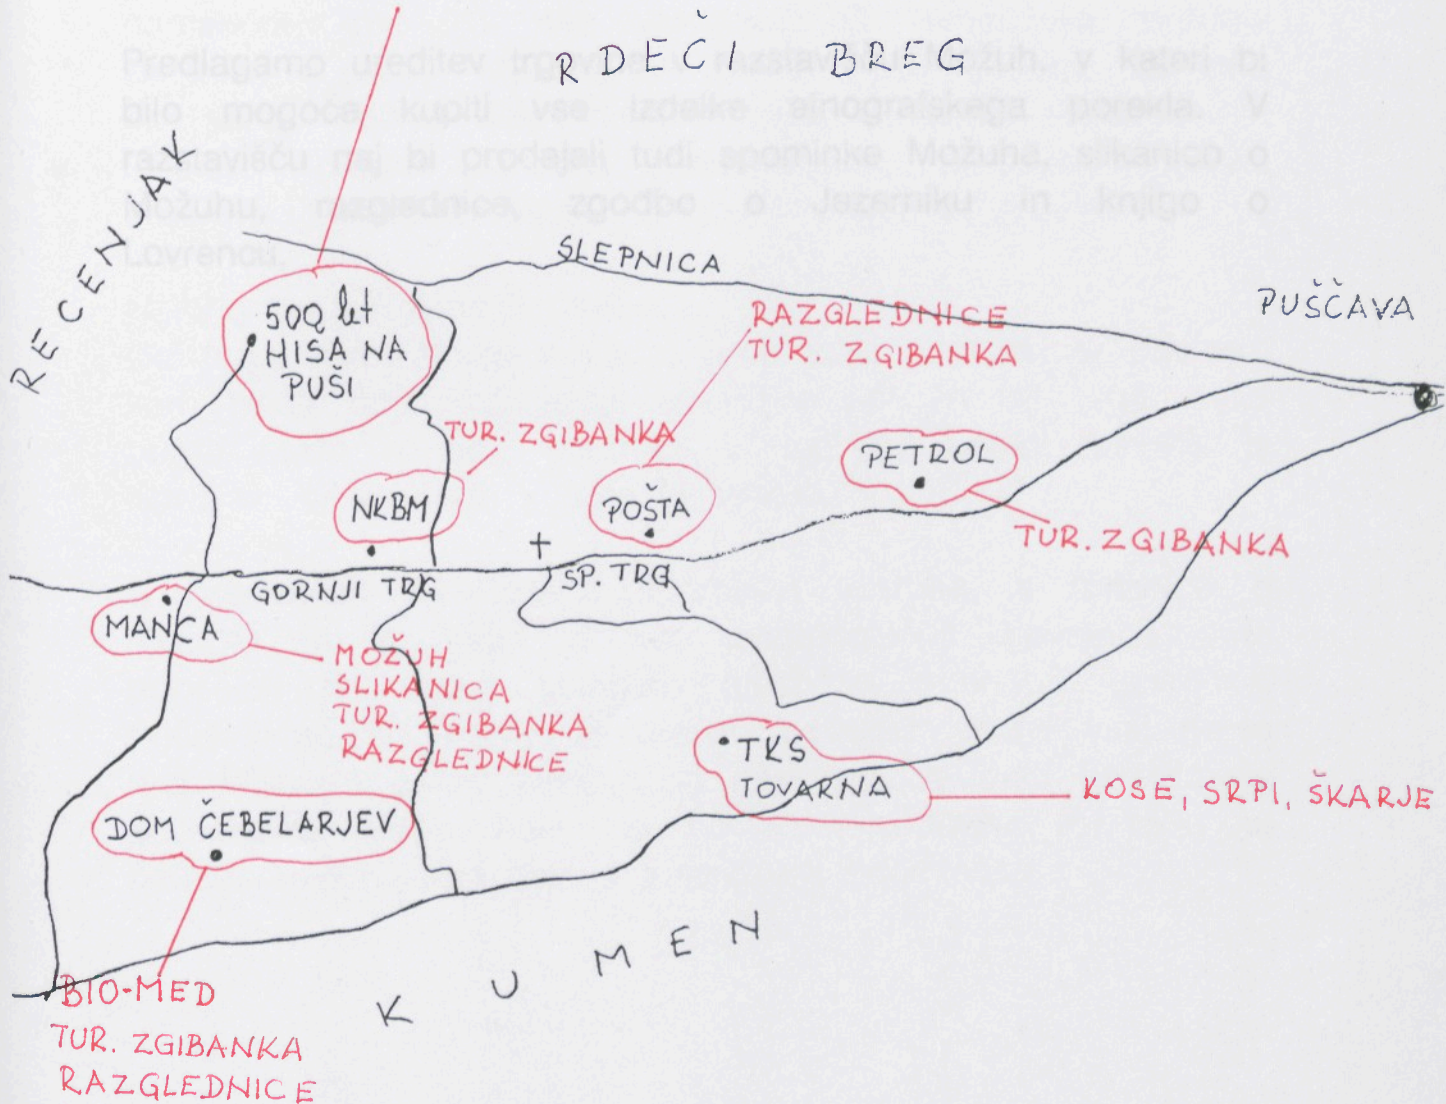 RDEČI BREG
Predlagamo ureditev trgovine v razstavišču Možuh, v kateri bi
bilo mogoče kupiti vse izdelke etnografskega porekla. V
razstavišču naj bi prodajali tudi spominke Možuha, slikanico o
Možuhu, razglednice, zgodbe o Jezerniku in knjigo o
Lovrencu.
REČENJAK
SLEPNICA
PUŠČAVA
500 let
HIŠA NA
PUŠI
RAZGLEDNICE
TUR. ZGIBANKA
TUR. ZGIBANKA
PETROL
NKBM
POŠTA
TUR. ZGIBANKA
GORNJI TRG
SP. TRG
MANCA
MOŽUH
SLIKANICA
TUR. ZGIBANKA
RAZGLEDNICE
TKS
TOVARNA
KOSE, SRPI, ŠKARJE
DOM ČEBELARJEV
KUMEN
BIO-MED
TUR. ZGIBANKA
RAZGLEDNICE